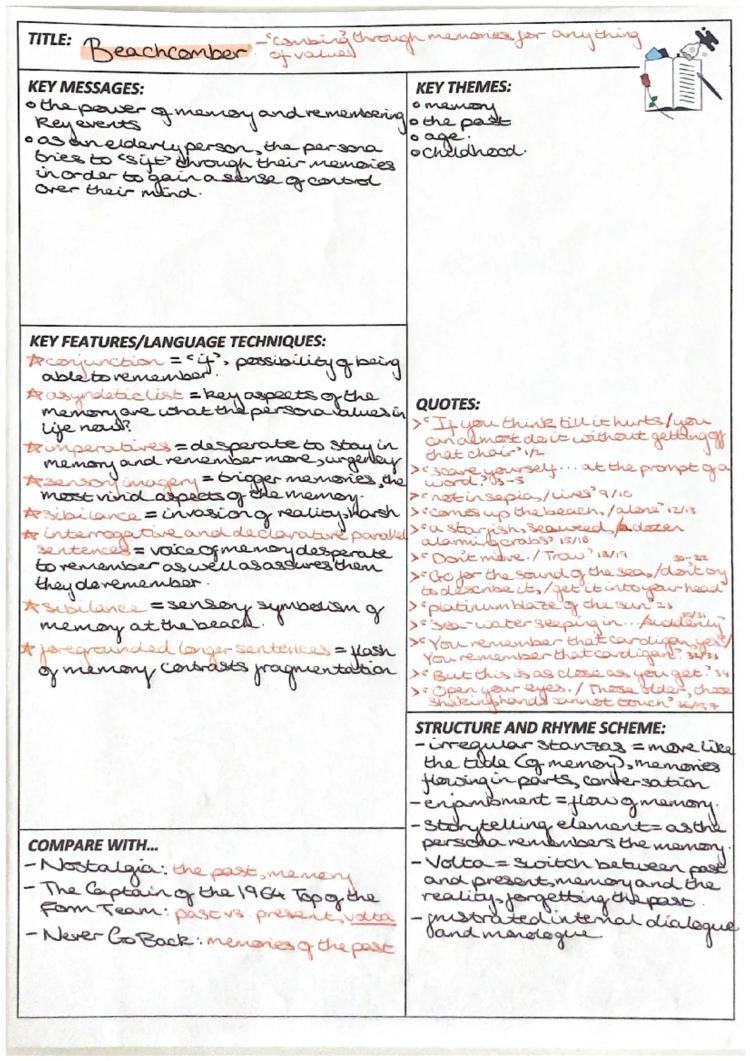 TITLE: Beachcomber - 'combing' through memories for anything
of value
KEY MESSAGES:
• the power of memory and remembering
key events
• as an elderly person, the persona
tries to 'sift' through their memories
in order to gain a sense of control
over their mind.
KEY THEMES:
• memory
• the past
• age
• childhood.
KEY FEATURES/LANGUAGE TECHNIQUES:
☆ conjunction = 'if', possibility of being
able to remember.
☆ asyndetic list = key aspects of the
memory are what the persona values in
life now?
☆ imperatives = desperate to stay in
memory and remember more, urgency
☆ sensory imagery = trigger memories, the
most vivid aspects of the memory.
☆ sibilance = invasion of reality, harsh
☆ interrogative and declarative parallel
sentences = voice of memory desperate
to remember as well as assures them
they do remember.
☆ sibilance = sensory symbolism of
memory at the beach.
☆ foregrounded longer sentences = flash
of memory contrasts fragmentation
QUOTES:
> 'If you think till it hurts / you
can almost do it without getting off
that chair' 1/2
> 'scare yourself... at the prompt of a
word.'
> 'not in sepia, / lives' 9/10
> 'comes up the beach, / alone' 12/13
> 'a starfish, seaweed, / a dozen
alarming crabs' 15/16
> 'Don't move. / Trow' 18/19
> 'Go for the sound of the sea, / don't try
to describe it, / get it into your head' 20-22
> 'platinum blaze of the sun' 23
> 'Sea-water seeping in... / suddenly'
> 'You remember that cardigan, yes? /
You remember that cardigan.' 32/33
> 'But this is as close as you get.' 34
> 'Open your eyes. / Those older, those
shaking hands cannot touch' 36/37
STRUCTURE AND RHYME SCHEME:
- irregular stanzas = move like
the title (of memory), memories
flowing in parts, conversation
- enjambment = flow of memory.
- Storytelling element = as the
persona remembers the memory.
- Volta = switch between past
and present, memory and the
reality, forgetting the past.
- frustrated internal dialogue
and monologue
COMPARE WITH...
- Nostalgia: the past, memory
- The Captain of the 1964 Top of the
Form Team: past vs. present, volta
- Never Go Back: memories of the past